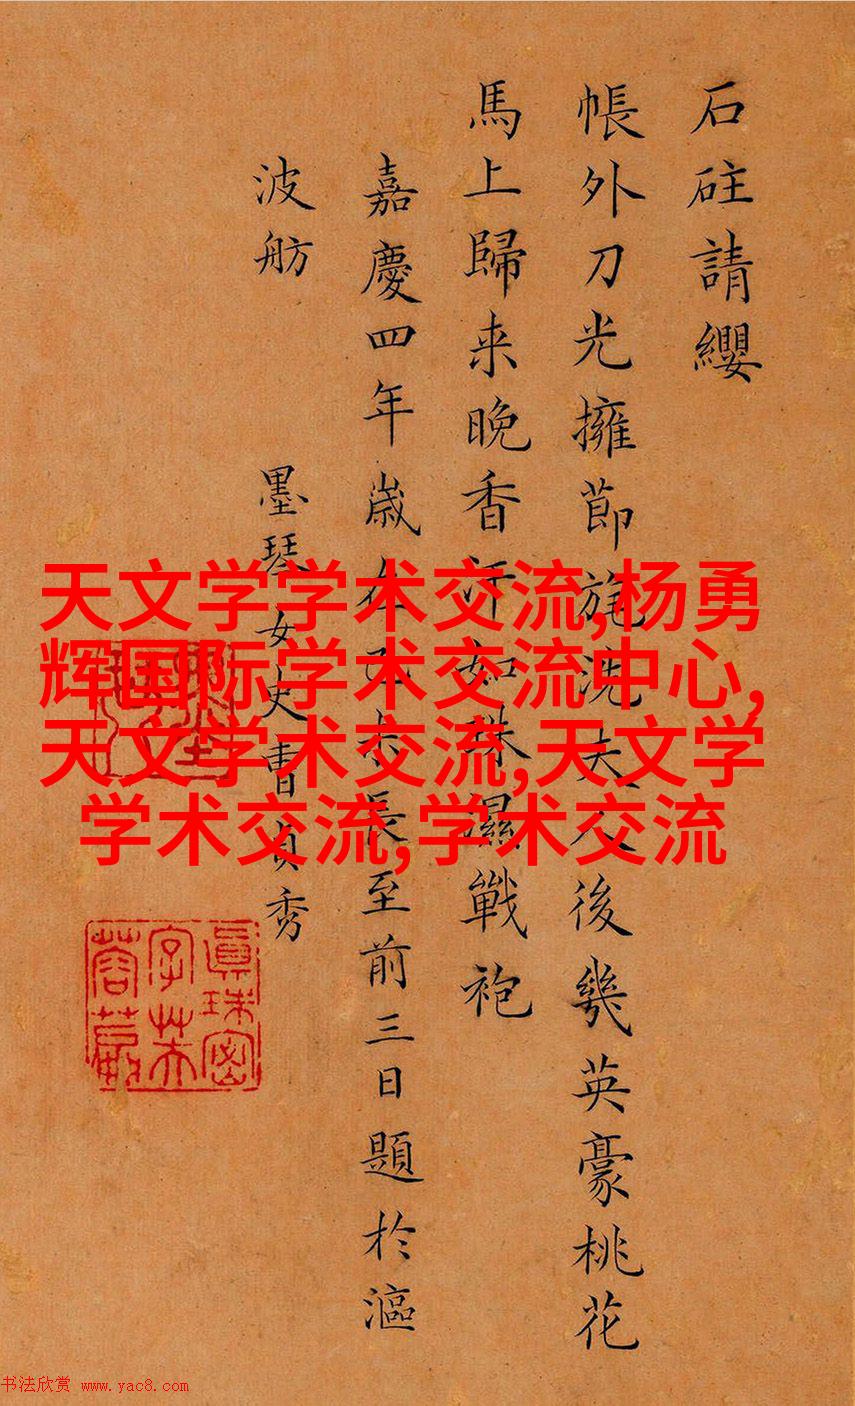 石砫請纓
帳外刀光擁節旄洗夫人後幾英豪桃花
馬上歸来晚香汗如珠濕戰袍
嘉慶四年歲在己未長至前三日題於漚
波舫 墨琴女史曹貞秀
眞珠密
字芙
蓉
天文学学术交流,杨勇
辉国际学术交流中心,
天文学术交流,天文学
学术交流,学术交流
书法欣赏 www.yac8.com